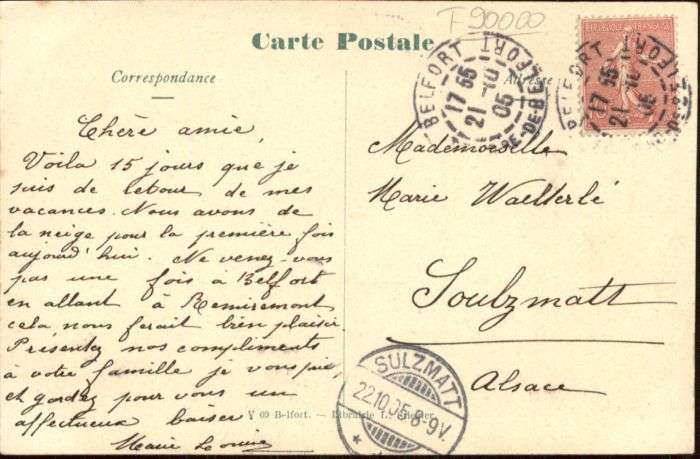 F 90000
Carte Postale
Correspondance
Adresse
REPUBLIQUE FRANÇAISE
BELFORT
17 55
21 10
05
BELFORT
Chère amie,
Voila 15 jours que je
suis de retour de mes
vacances. Nous avons de
la neige pour la première fois
aujourd'hui. Ne venez-vous
pas une fois à Belfort
en allant à Remiremont
cela nous ferait bien plaisir
Presentez nos compliments
à votre famille je vous prie,
et gardez pour vous un
affectueux baiser
Marie Louise
Mademoiselle
Marie Waelterlé
Soulzmatt
Alsace
SULZMATT
22.10.05 8-9V.
V 69 Belfort. — Librairie L.